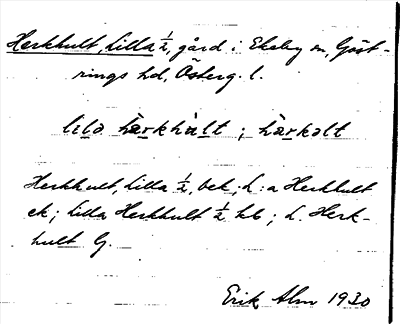 Herkhult, Lilla ½, gård i Ekeby sn, Göst-
rings hd, Österg. l.
lila hærkhùlt ; hærkalt
Herkhult, Lilla ½, bek.; L:a Herkhult
ek; Lilla Herkhult ½ hb; L. Herk-
hult G.
Erik Alm 1930